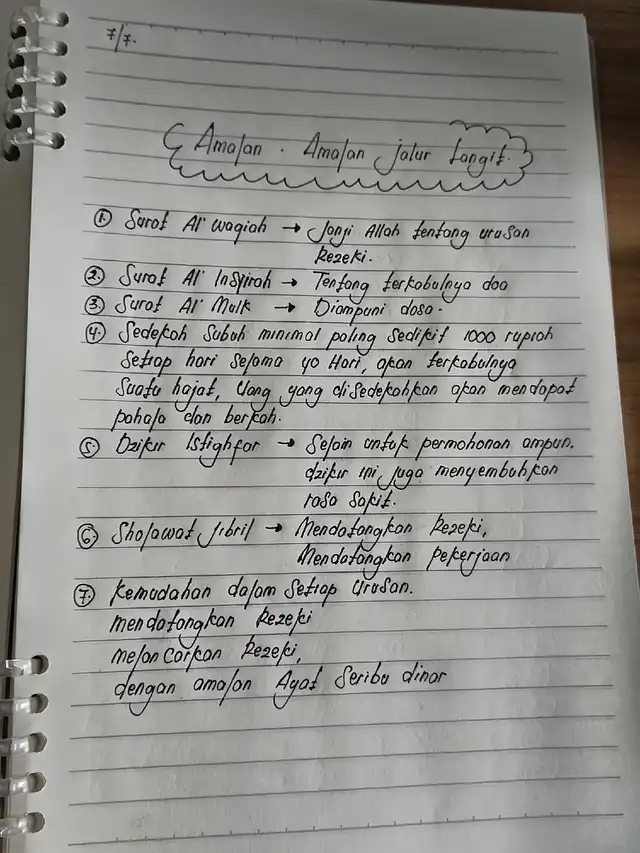 7/7.
Amalan - Amalan jalur langit.
1. Surat Al' waqiah → Janji Allah tentang urusan
Rezeki.
2. Surat Al' Insyirah → Tentang terkabulnya doa
3. Surat Al' Mulk → Diampuni dosa.
4. Sedekah Subuh minimal paling sedikit 1000 rupiah
Setiap hari selama 40 Hari, akan terkabulnya
Suatu hajat, Uang yang disedekahkan akan mendapat
pahala dan berkah.
5. Dzikir Istighfar → Selain untuk permohonan ampun.
dzikir ini juga menyembuhkan
rasa sakit.
6. Sholawat Jibril → Mendatangkan Rezeki,
Mendatangkan pekerjaan
7. Kemudahan dalam Setiap Urusan.
mendatangkan Rezeki
melancarkan Rezeki,
dengan amalan Ayat Seribu dinar